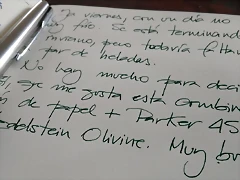 En viernes, con un día no
muy frío. Se está terminando
invierno, pero todavía falta
par de heladas.
No hay mucho para deci
que me gusta esta combin
n de papel + Parker 45
Edelstein Olivine. Muy b